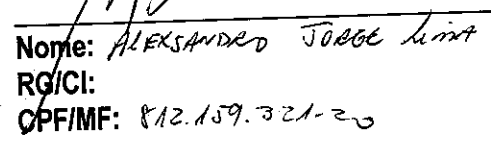 Nome: ALEKSANDRO JORGE Lima
RG/CI:
CPF/MF: 812.159.321-20